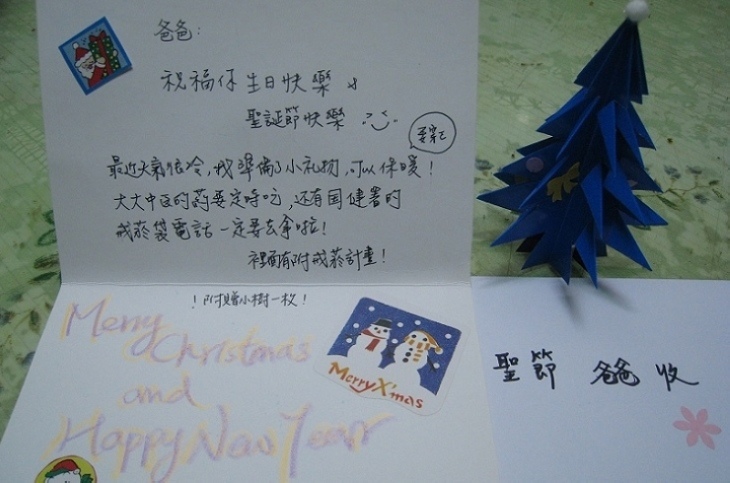 爸爸:
祝福你生日快樂 &
聖誕節快樂
要穿ㄛ
最近天氣很冷,我準備了小礼物,可以保暖!
大大中医的药要定時吃,还有国健署的
戒菸袋電話一定要去拿啦!
裡面有附戒菸計畫!
!附贈小樹一枚!
Merry
Christmas
and
Happy New Year
Merry X'mas
聖節 爸爸 收